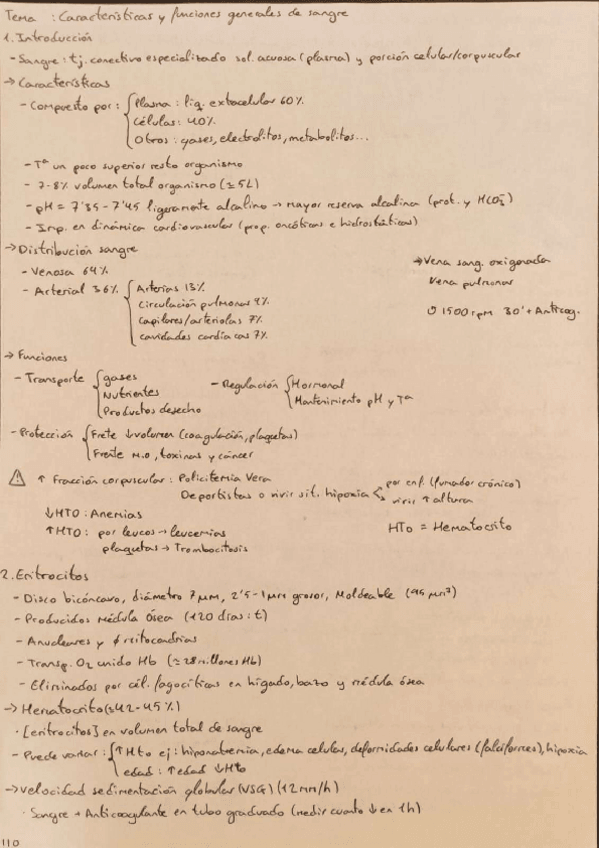 Tema : Características y funciones generales de sangre
1. Introducción
- Sangre : tj. conectivo especializado sol. acuosa (plasma) y porción celular/corpuscular
→ Características
- Compuesto por : Plasma : líq. extracelular 60%
Células : 40%
Otros : gases, electrolitos, metabolitos...
- Tª un poco superior resto organismo
- 7-8% volumen total organismo (≈ 5L)
- pH = 7'35 - 7'45 ligeramente alcalino → mayor reserva alcalina (prot. y HCO3-)
- Imp. en dinámica cardiovascular (prop. oncóticas e hidrostáticas)
→ Distribución sangre
- Venosa 64%
- Arterial 36% Arterias 13%
Circulación pulmonar 9%
Capilares/arteriolas 7%
cavidades cardíacas 7%
→ Vena sang. oxigenada
Vena pulmonar
↺ 1500 rpm 30' + Anticoag.
→ Funciones
- Transporte gases
Nutrientes
Productos desecho
- Regulación Hormonal
Mantenimiento pH y Tª
- Protección Frete ↓volumen (coagulación, plaquetas)
Frente M.O, toxinas y cáncer
⚠ ↑ Fracción corpuscular : Policitemia Vera
Deportistas o vivir sit. hipoxia por enf. (fumador crónico)
vivir ↑ altura
↓HTO : Anemias
↑HTO : por leucos → leucemias
plaquetas → Trombocitosis
HTO = Hematocrito
2. Eritrocitos
- Disco bicóncavo, diámetro 7 μm, 2'5 - 1 μm grosor, Moldeable (95 μm³)
- Producidos Médula Ósea (120 días : t)
- Anucleares y ∅ mitocondrias
- Transp. O2 unido Hb (≈ 28 millones Hb)
- Eliminados por cél. fagocíticas en hígado, bazo y médula ósea
→ Hematocrito (≈42-45%)
· [eritrocitos] en volumen total de sangre
- Puede variar : ↑Hto ej : hiponatremia, edema celulas, deformidades celulares (falciformes), hipoxia
edad : ↑edad ↓Hto
→ Velocidad sedimentación globular (VSG) (12 mm/h)
· Sangre + Anticoagulante en tubo graduado (medir cuanto ↓ en 1h)
110